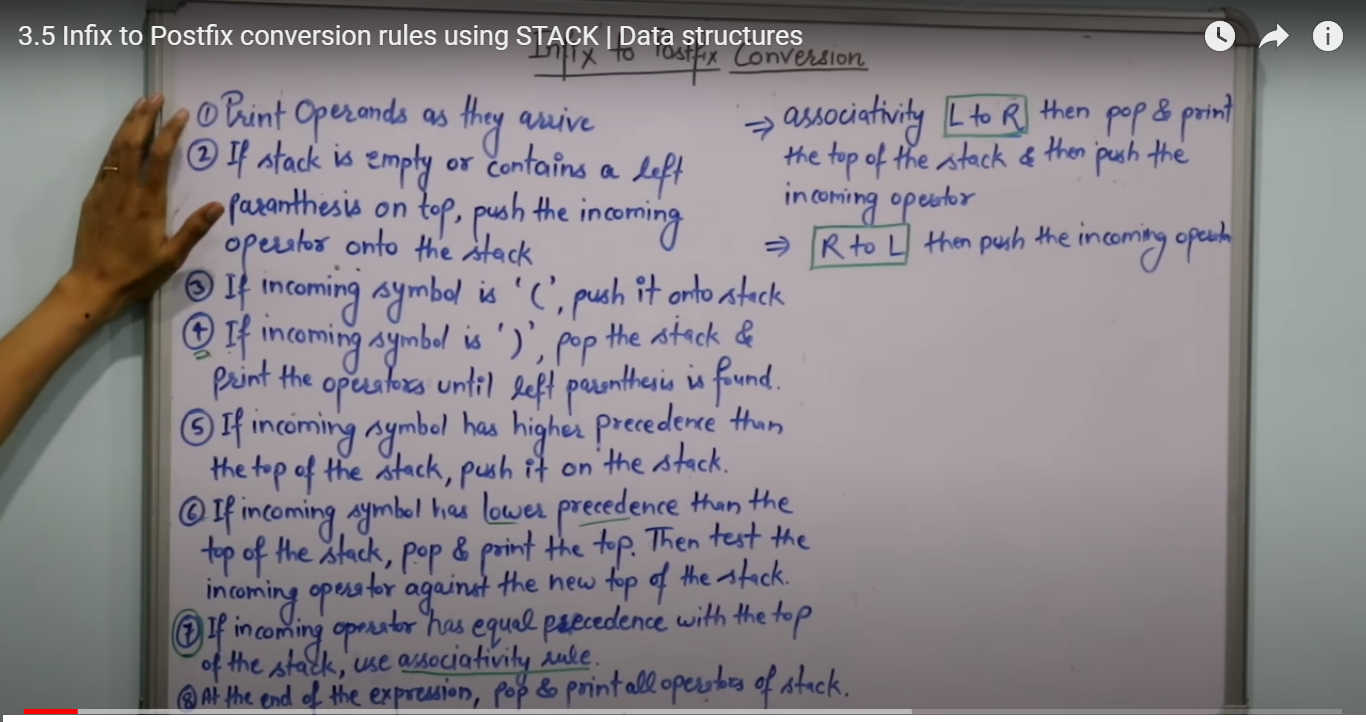 3.5 Infix to Postfix conversion rules using STACK | Data structures
Infix to Postfix Conversion
① Print Operands as they arrive
② If stack is empty or contains a left
paranthesis on top, push the incoming
operator onto the stack
③ If incoming symbol is '(', push it onto stack
④ If incoming symbol is ')', pop the stack &
print the operators until left paranthesis is found.
⑤ If incoming symbol has higher precedence than
the top of the stack, push it on the stack.
⑥ If incoming symbol has lower precedence than the
top of the stack, pop & print the top. Then test the
incoming operator against the new top of the stack.
⑦ If incoming operator has equal precedence with the top
of the stack, use associativity rule.
⑧ At the end of the expression, pop & print all operators of stack.
⇒ associativity L to R then pop & print
the top of the stack & then push the
incoming operator
⇒ R to L then push the incoming